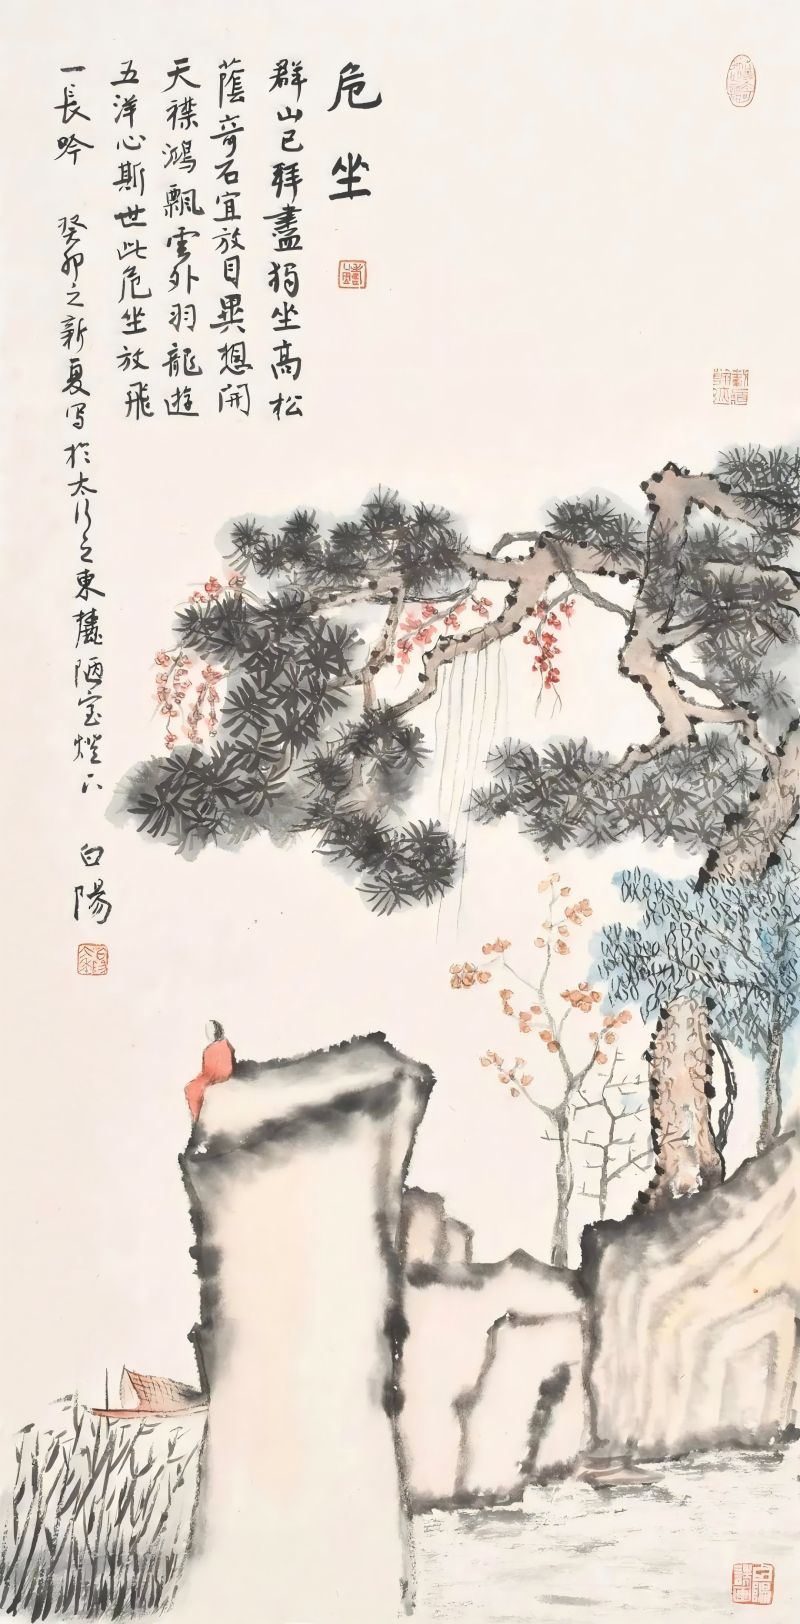 危坐
群山已拜盡獨坐高松
蔭奇石宜放目異想開
天襟鴻飄雲外羽龍遊
五洋心斯世此危坐放飛
一長吟 癸卯之新夏寫於太行之東麓陋室燈下 白陽